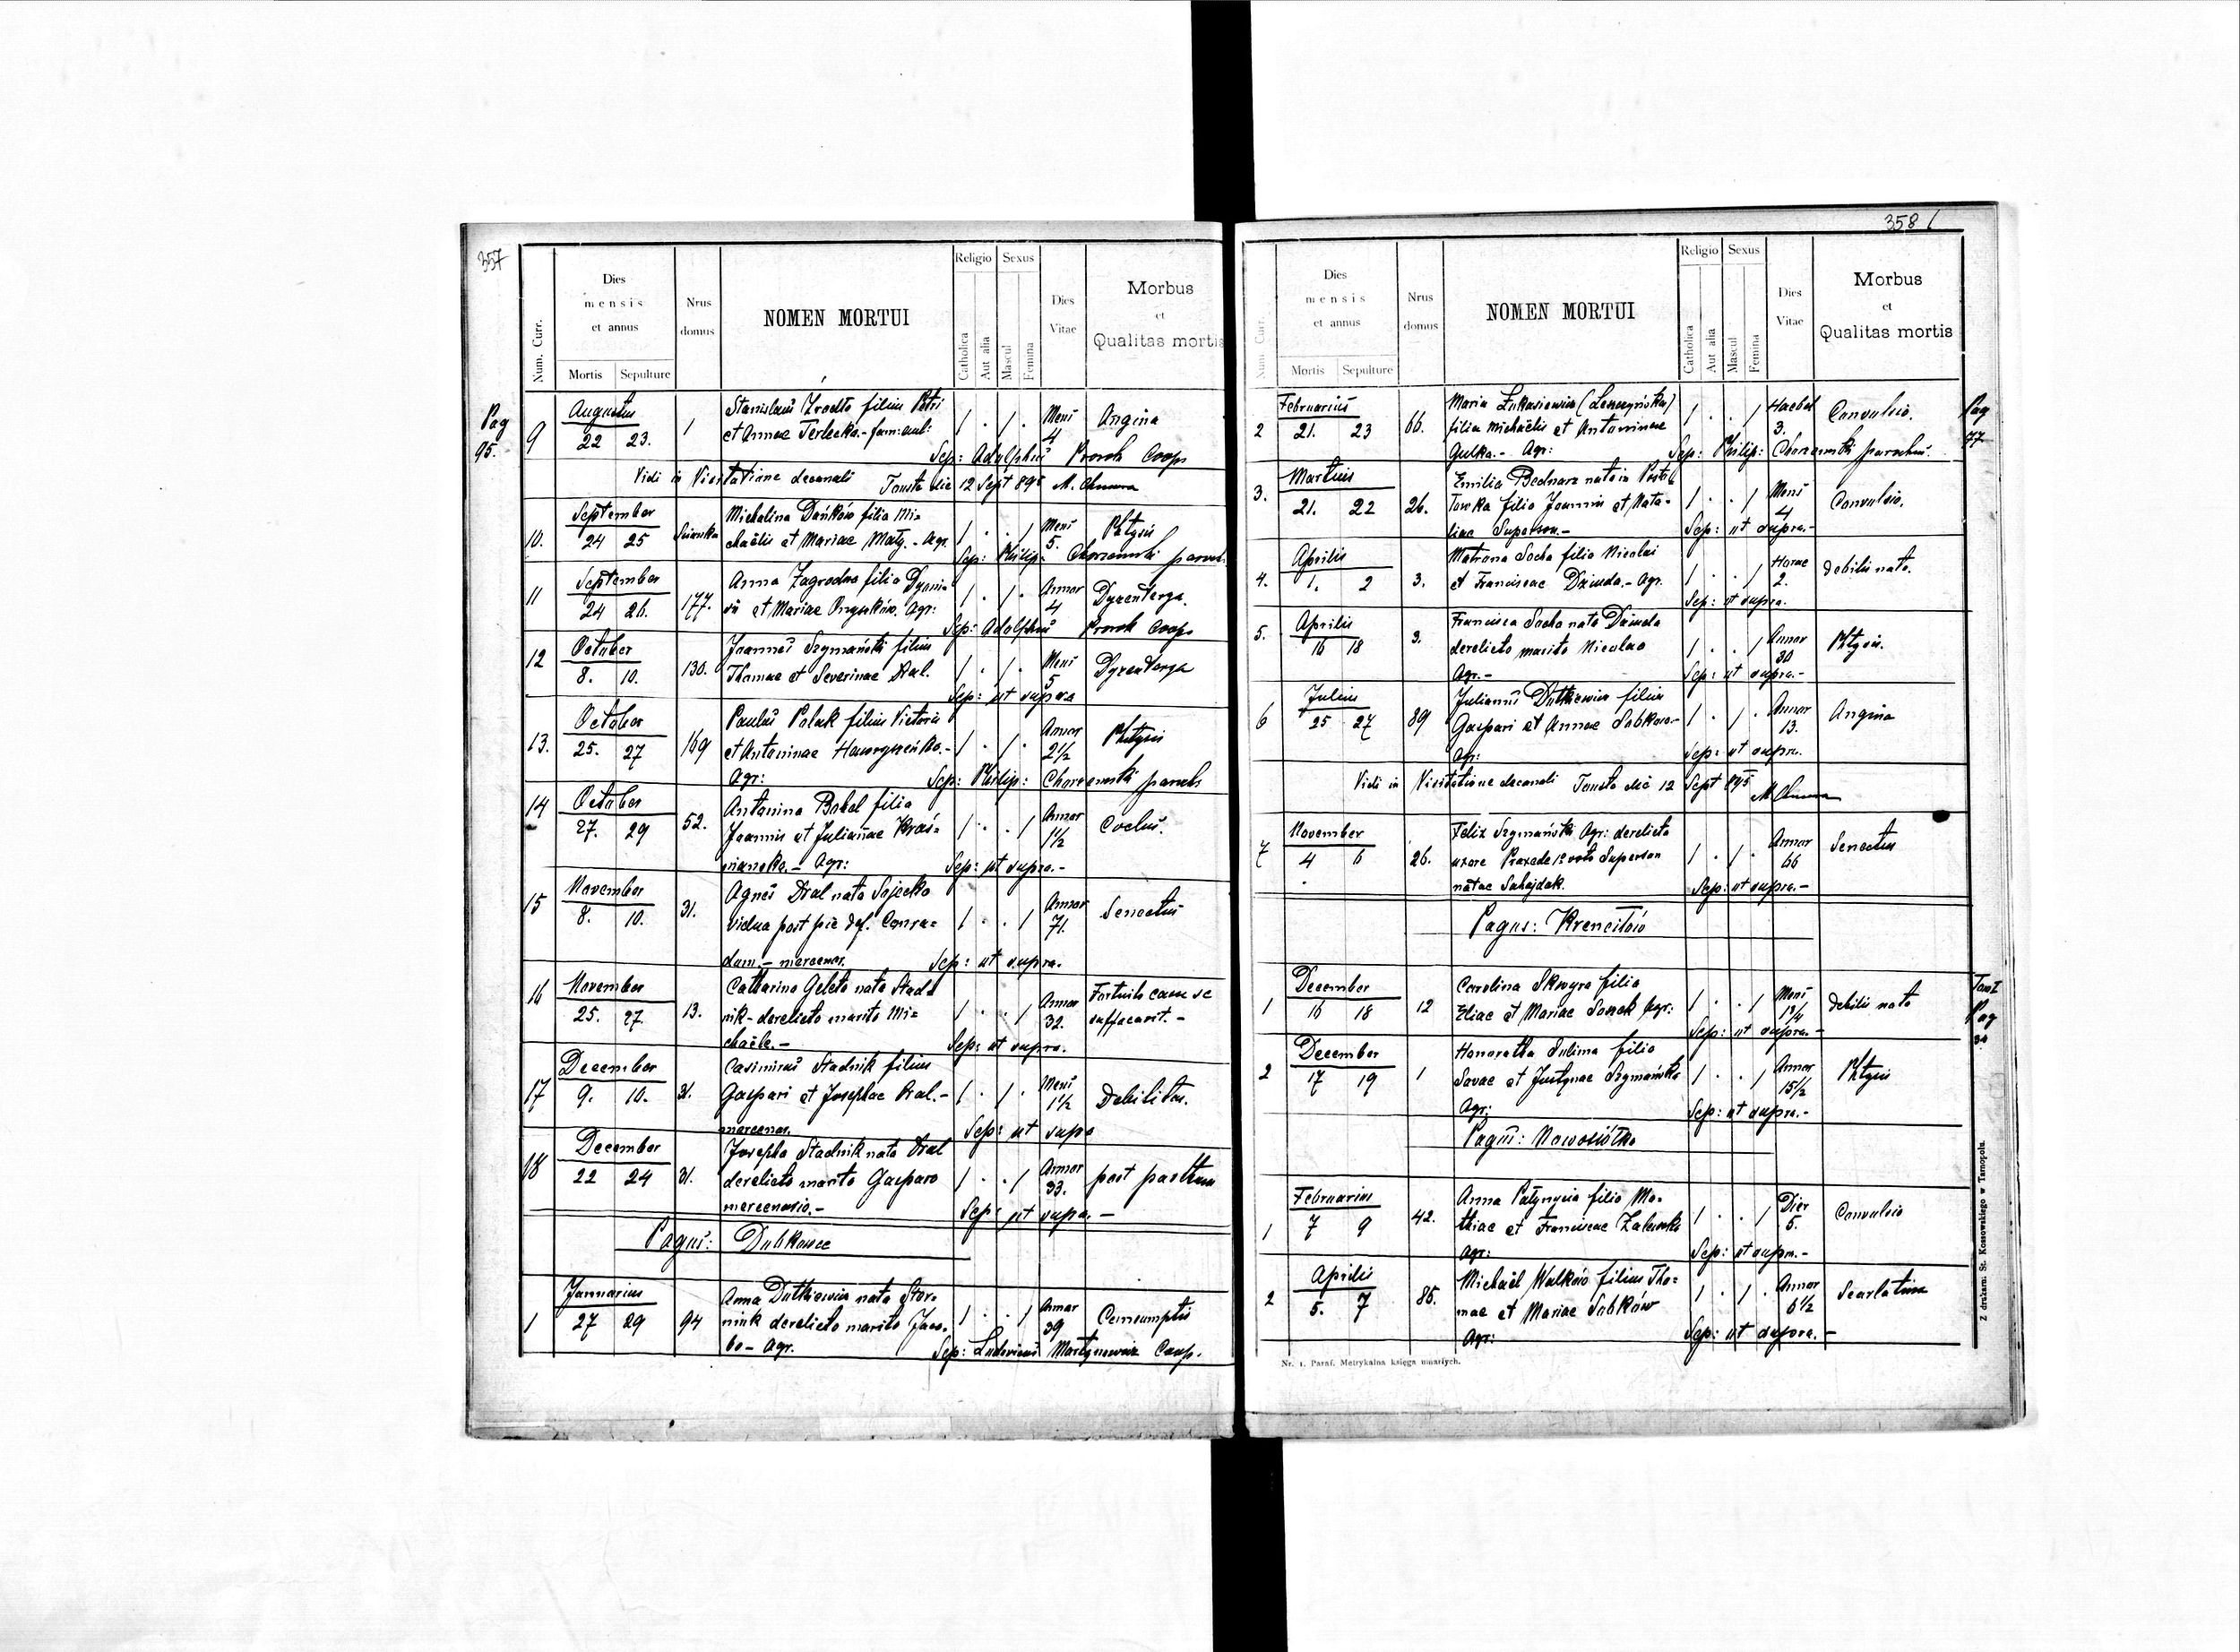 357
Num. Curr.
Dies
mensis
et annus
Mortis Sepulture
Nrus
domus
NOMEN MORTUI
Religio
Catholica
Aut alia
Sexus
Mascul
Femina
Dies
Vitae
Morbus
et
Qualitas mortis
Pag
95.
9 Augustus 22 23. 1
Stanislaus filius Petri
et Annae Terlecka.- fam: aul:
1 . 1 . Mens 4 Angina
Sep: Adolphus Coop
Vidi in Visitatione decanali Touste die 12 Sept 895 M.
10. September 24 25
Michalina Dańków filia Mi=
chaëlis et Mariae Maty.- Agr.
1 . . 1 Mens 5. Phtysis
Sep: Philip: Chorzemski paroch.
11 September 24 26. 177.
Anna Zagrodna filia Dyoni=
sii et Mariae Onyszków. Agr:
1 . 1 . Annor 4 Dyzenterya.
Sep: Adolphus Coop
12 October 8. 10. 130.
Joannes Szymański filius
Thomae et Severinae Dral.
1 . 1 . Mens 5 Dyzenterya
Sep: ut supra
13. October 25. 27 169
Paulus Polak filius Victoris
et Antoninae .-
Agr:
1 . 1 . Annor 2 1/2 Phtysis
Sep: Philip: Chorzemski paroch
14 October 27. 29 52.
Antonina Bakal filia
Joannis et Julianae Kraś=
nianska.- Agr:
1 . . 1 Annor 1 1/2 Coclus.
Sep: ut supra.-
15 November 8. 10. 31.
Agnes Dral nata Sajecka
vidua post pie def. Conra=
dum.- mercenar.
1 . . 1 Annor 71. Senectus
Sep: ut supra.
16 November 25. 27. 13.
Catharina Geleta nata Stad=
nik- derelicto marito Mi=
chaële.-
1 . . 1 Annor 32. Fortuito casu se
suffocavit.-
Sep: ut supra.
17 December 9. 10. 31.
Casimirus Stadnik filius
Gaspari et Josephae Dral.-
mercenar.
1 . 1 . Mens 1 1/2 Debilitas.
Sep: ut supa
18 December 22 24 31.
Josepha Stadnik nata Dral
derelicto marito Gasparo
mercenario.-
1 . . 1 Annor 33. post partum
Sep: ut supa.-
Pagus: Dubkowce
1 Januarius 27 29 94
Anna Dutkiewicz nata Skor=
nik derelicto marito Jaco=
bo- Agr.
1 . . 1 Annor 39 Consumptio
Sep: Ludovicus Martynowicz Coop.
358
Num. Curr.
Dies
mensis
et annus
Mortis Sepulture
Nrus
domus
NOMEN MORTUI
Religio
Catholica
Aut alia
Sexus
Mascul
Femina
Dies
Vitae
Morbus
et
Qualitas mortis
Pag
77
2 Februarius 21. 23 66.
Maria Łukasiewicz (Leszczyńska)
filia Michaëlis et Antoninae
Gulka.- Agr:
1 . . 1 Haebd 3. Convulsio.
Sep: Philip: Chorzemski parochus.
3. Martius 21. 22 26.
Emilia Bednarz nata in
filia Joannis et Nata=
liae Superson.-
1 . . 1 Mens 4 Convulsio.
Sep: ut supra.-
4. Aprilis 1. 2 3.
Matrona Socha filia Nicolai
et Franciscae Dziuda.- Agr.
1 . . 1 Horae 2. debilis nata.
Sep: ut supra.
5. Aprilis 16 18 3.
Francisca Socha nata Dziuda
derelicto marito Nicolao
Agr.-
1 . . 1 Annor 30 Phtysis.
Sep: ut supra.-
6 Julius 25 27 89
Julianus Dutkiewicz filius
Gaspari et Annae Sobków-
Agr:
1 . 1 . Annor 13. Angina
Sep: ut supra.
Vidi in Visitatione decanali Touste die 12 Sept 895 M.
7 November 4 6 26.
Felix Szymański Agr: derelicta
uxore Praxede 1º voto Superson
natae Sahajdak.
1 . 1 . Annor 66 Senectus
Sep: ut supra.-
Pagus: Krencilów
Tom I
Pag
1 December 16 18 12
Carolina Skwyra filia
Eliae et Mariae Sossek Agr:
1 . . 1 Mens 1 3/4 debilis nata
Sep: ut supra.-
2 December 17 19 1
Honoratha Sulima filia
Savae et Justynae Szymańska
Agr:
1 . . 1 Annor 15 1/2 Phtysis
Sep: ut supra.-
Pagus: Nowosiółka
1 Februarius 7 9 42.
Anna filia Ma=
thiae et Franciscae Zalewska
Agr:
1 . . 1 Dier 5. Convulsio
Sep: ut supra.-
2 Aprilis 5. 7 85.
Michaël Walków filius Tho=
mae et Mariae Sobków
Agr:
1 . 1 . Annor 6 1/2 Scarlatina
Sep: ut supra.-
Nr. 1. Paraf. Metrykalna księga umarłych.
Z drukarni St. Kossowskiego w Tarnopolu.